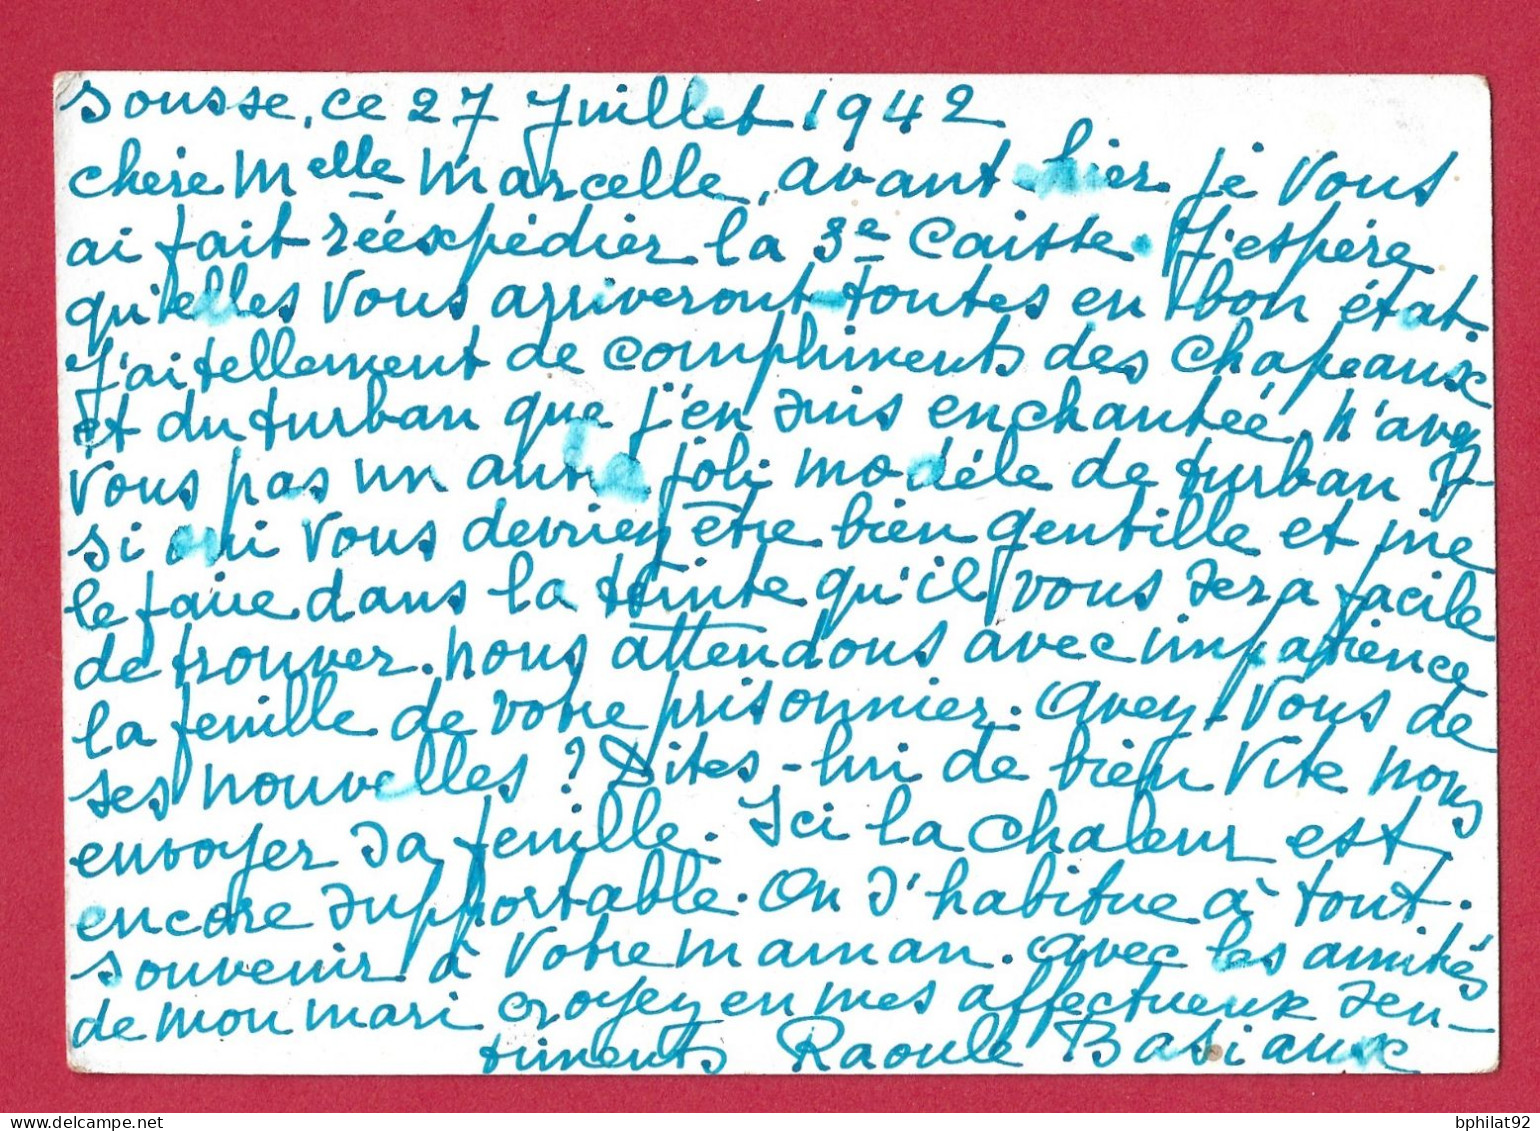 Sousse, ce 27 Juillet 1942
chère Melle Marcelle, avant hier je vous
ai fait réexpédier la 3e Caisse. J'espère
qu'elles vous arriveront toutes en bon état.
J'ai tellement de compliments des chapeaux
et du turban que j'en suis enchantée. N'avez
vous pas un autre joli modèle de turban ?
si oui vous devriez être bien gentille et me
le faire dans la teinte qu'il vous sera facile
de trouver. Nous attendons avec impatience
la feuille de votre prisonnier. Avez-vous de
ses nouvelles ? Dites-lui de bien vite nous
envoyer sa feuille. Ici la chaleur est
encore supportable. On s'habitue à tout.
Souvenir à votre maman. Avec les amitiés
de mon mari croyez en mes affectueux sen-
timents Raoule Basiaux
bphilat92